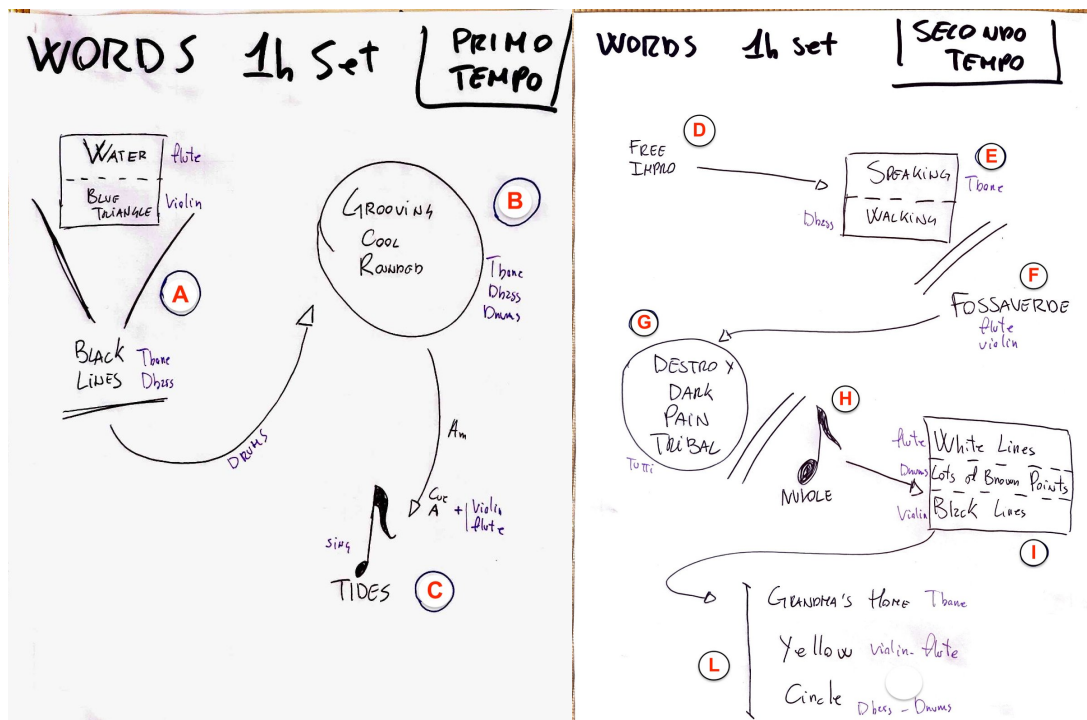 WORDS 1h Set
PRIMO
TEMPO
WATER flute
BLUE
TRIANGLE violin
A
BLACK Tbone
LINES Dbass
DRUMS
GROOVING
COOL
ROUNDED
B
Tbone
Dbass
Drums
Am
CUE
A + violin
flute
sing
TIDES C
WORDS 1h set
SECONDO
TEMPO
D
FREE
IMPRO
E
SPEAKING Tbone
Dbass WALKING
F
FOSSAVERDE
flute
violin
G
DESTROY
DARK
PAIN
TRIBAL
TUTTI
H
NUVOLE
flute White Lines
Drums Lots of Brown Points
Violin Black Lines
I
GRANDMA'S HOME Tbone
Yellow violin-flute
L
Circle Dbass - Drums